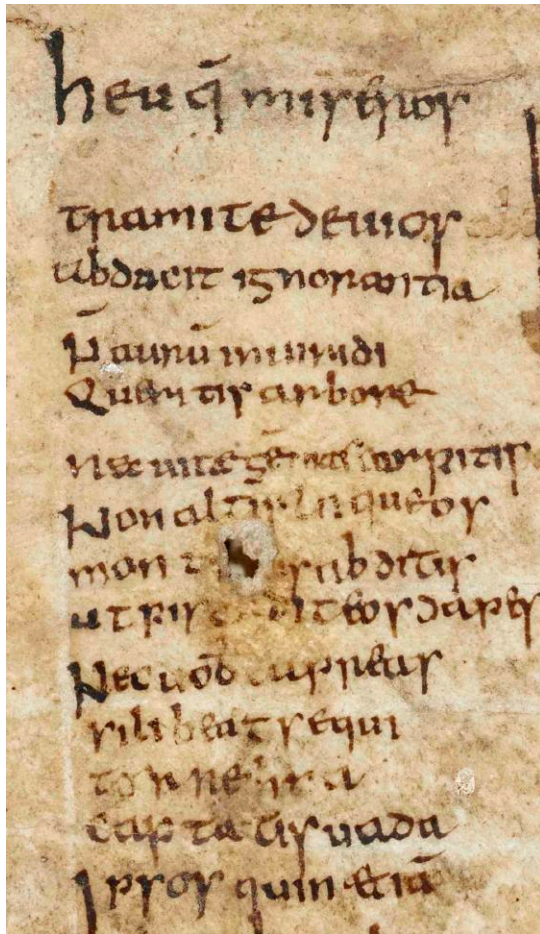 heu q̄ miseros
tramite deuios
abducit ignorantia
N̄ aurū in uiridi
Queritis arbore
nec uite gē carpitis
Non altis laqueos
mon subditis
ut pis ditetis dapes
Nec uob̄ capreas
si libeat sequi
captatis uada
Ipsos quin etiā